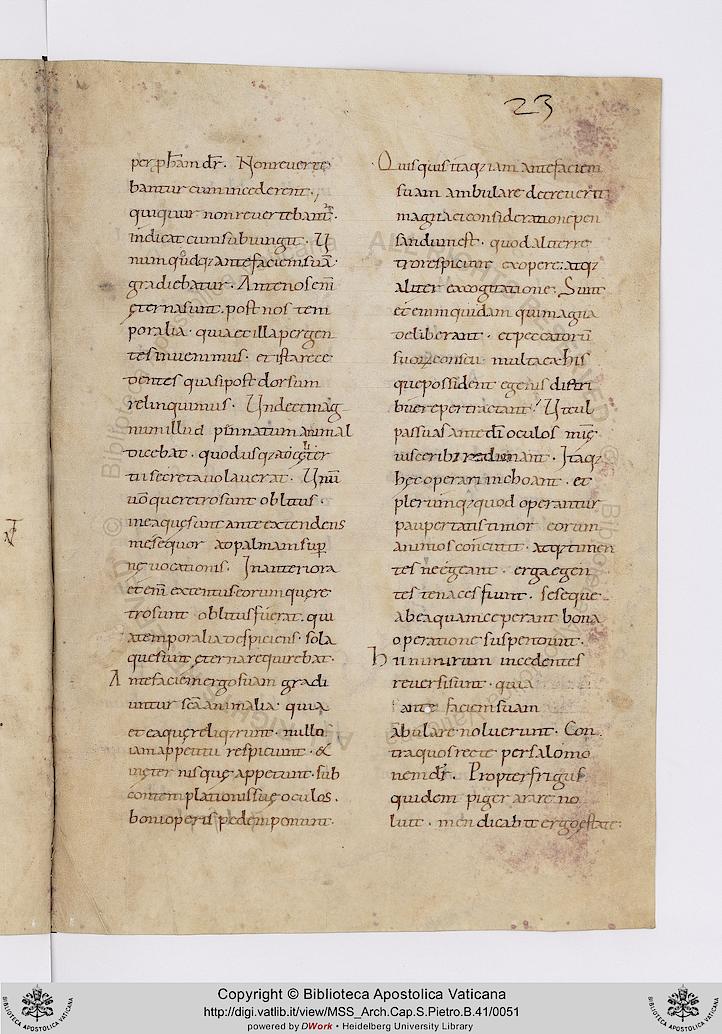 23
per ꝓphãm dr̃. Non reuerte
bantur cum incederent.
quiquur non reuertebant̃.
indicat cum subiungit. Un
gradiebatur. Ante nos em̃
ęterna sunt. post nos tem
poralia. quia et illa pergen
tes inuenimus. et ista rece
dentes quasi post dorsum
relinquimus. Unde et mag
num illud pinnatum animal
dicebat.
tiũ secreta uolauerat. Unũ
uõ que retro sunt oblitus.
in ea que sunt ante extendens
me sequor ad palmam sup̱
nę uocationis. In anteriora
et em̃ extentus eorum que re
tro sunt oblitus fuerat. qui
a temporalia despiciens. sola
que sunt ęterna requirebat.
Ante faciem ergo suam gradi
untur sc̃a animalia. quia
et ea quę reliq̃runt. nullo
iam appetitu respiciunt. &
in ęternis quę appetunt. sub
contemplationis suę oculos.
boni operis pedem ponunt.
Quisquis itaq; iam ante faciem
suam ambulare decreuerit
magna ei consideratione pen
sandum est. quod aliter re
tro respiciunt ex opere. atq;
aliter ex cogitatione. Sunt
et enim quidam qui magna
deliberant. et peccatorũ
suoꝝ conscii. multa ea his
que possident egenis distri
buere pertractant. Ut cul
pas suas ante dĩ oculos
redimant. Itaq;
hęc operari inchoant. et
plerumq; quod operantur
paupertatis timor eorum
animos concutit. atq; timen
tes ne egeant. erga egen
tes tenaces fiunt. seseque
ab ea quam ceperant bona
operatione suspendunt.
Hi nimirum incedentes
reuersi sunt. quia
ante faciem suam
ãbulare noluerunt. Con
tra quos recte per salomo
nem dr̃. Propter frigus
quidem piger arare no
luit. mendicabit ergo ęstate.
Copyright © Biblioteca Apostolica Vaticana
http://digi.vatlib.it/view/MSS_Arch.Cap.S.Pietro.B.41/0051
powered by DWork • Heidelberg University Library
BIBLIOTECA APOSTOLICA VATICANA
BIBLIOTECA APOSTOLICA VATICANA